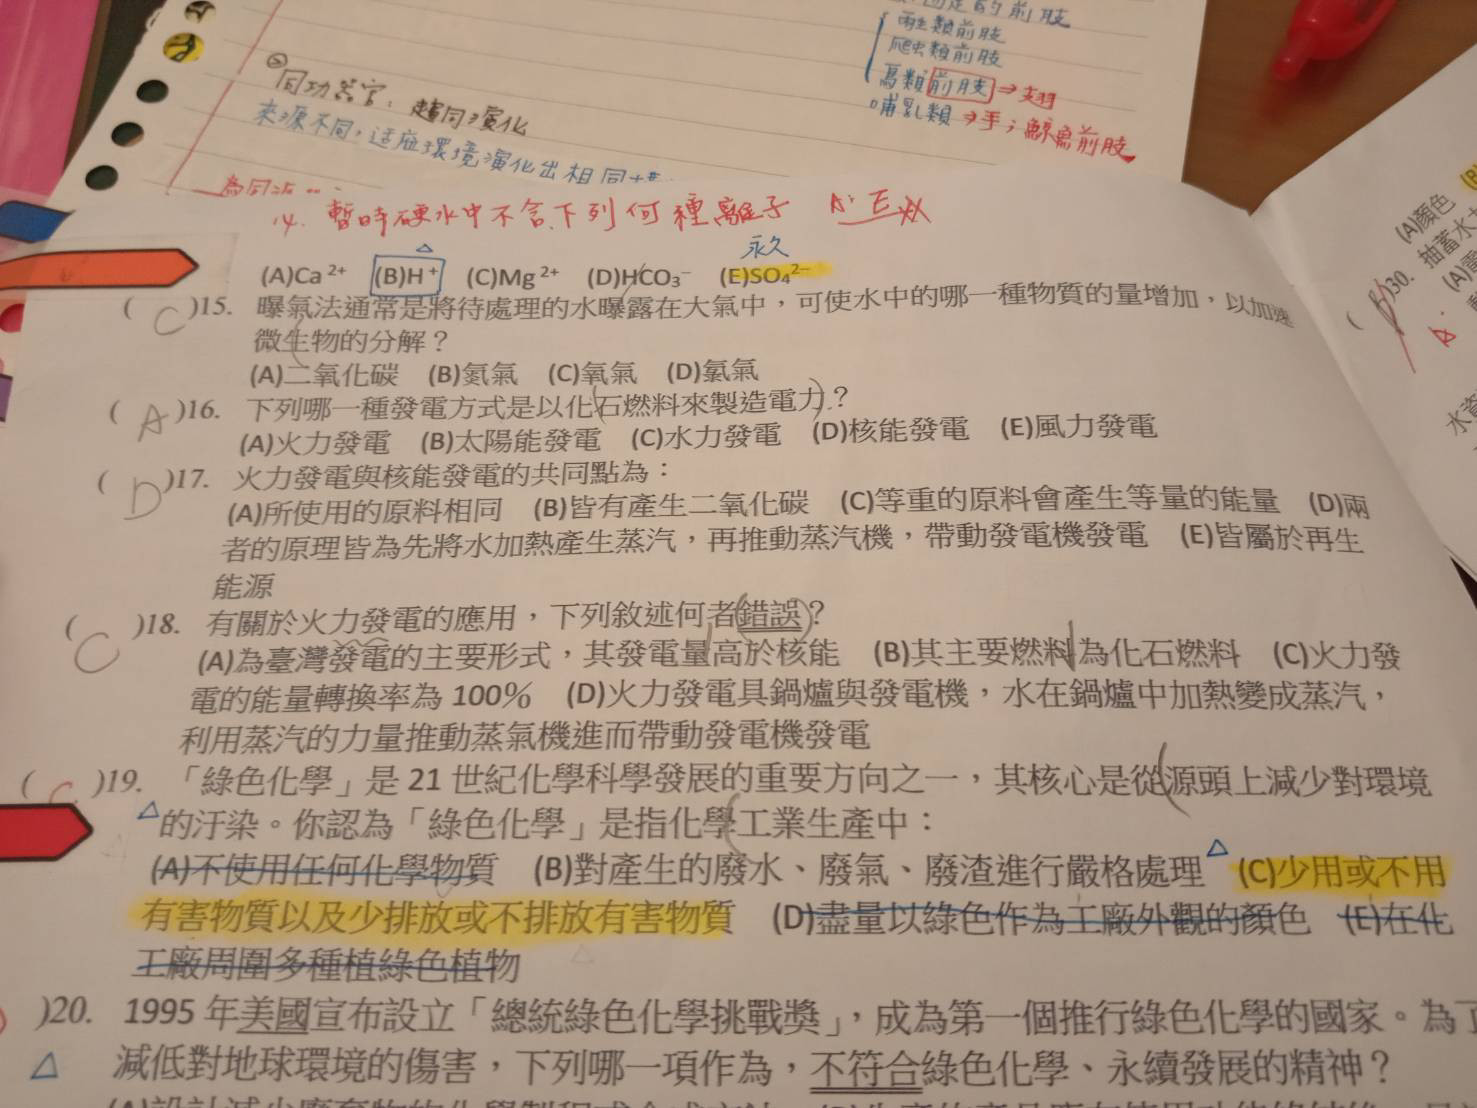 兩生類前肢
爬虫類前肢
鳥類前肢⇒翅
哺乳類⇒手；鯨魚前肢
② 同功器官：趨同演化
來源不同，適應環境演化出相同
14. 暫時硬水中不含下列何種離子 A: E
永久
(A)Ca²⁺ (B)H⁺ (C)Mg²⁺ (D)HCO₃⁻ (E)SO₄²⁻
( C )15. 曝氣法通常是將待處理的水曝露在大氣中，可使水中的哪一種物質的量增加，以加速
微生物的分解？
(A)二氧化碳 (B)氮氣 (C)氧氣 (D)氯氣
( A )16. 下列哪一種發電方式是以化石燃料來製造電力？
(A)火力發電 (B)太陽能發電 (C)水力發電 (D)核能發電 (E)風力發電
( D )17. 火力發電與核能發電的共同點為：
(A)所使用的原料相同 (B)皆有產生二氧化碳 (C)等重的原料會產生等量的能量 (D)兩
者的原理皆為先將水加熱產生蒸汽，再推動蒸汽機，帶動發電機發電 (E)皆屬於再生
能源
( C )18. 有關於火力發電的應用，下列敘述何者錯誤？
(A)為臺灣發電的主要形式，其發電量高於核能 (B)其主要燃料為化石燃料 (C)火力發
電的能量轉換率為 100% (D)火力發電具鍋爐與發電機，水在鍋爐中加熱變成蒸汽，
利用蒸汽的力量推動蒸氣機進而帶動發電機發電
( C )19. 「綠色化學」是 21 世紀化學科學發展的重要方向之一，其核心是從源頭上減少對環境
的汙染。你認為「綠色化學」是指化學工業生產中：
(A)不使用任何化學物質 (B)對產生的廢水、廢氣、廢渣進行嚴格處理 (C)少用或不用
有害物質以及少排放或不排放有害物質 (D)盡量以綠色作為工廠外觀的顏色 (E)在化
工廠周圍多種植綠色植物
)20. 1995 年美國宣布設立「總統綠色化學挑戰獎」，成為第一個推行綠色化學的國家。為了
減低對地球環境的傷害，下列哪一項作為，不符合綠色化學、永續發展的精神？
(A)顏色
30. 抽蓄水